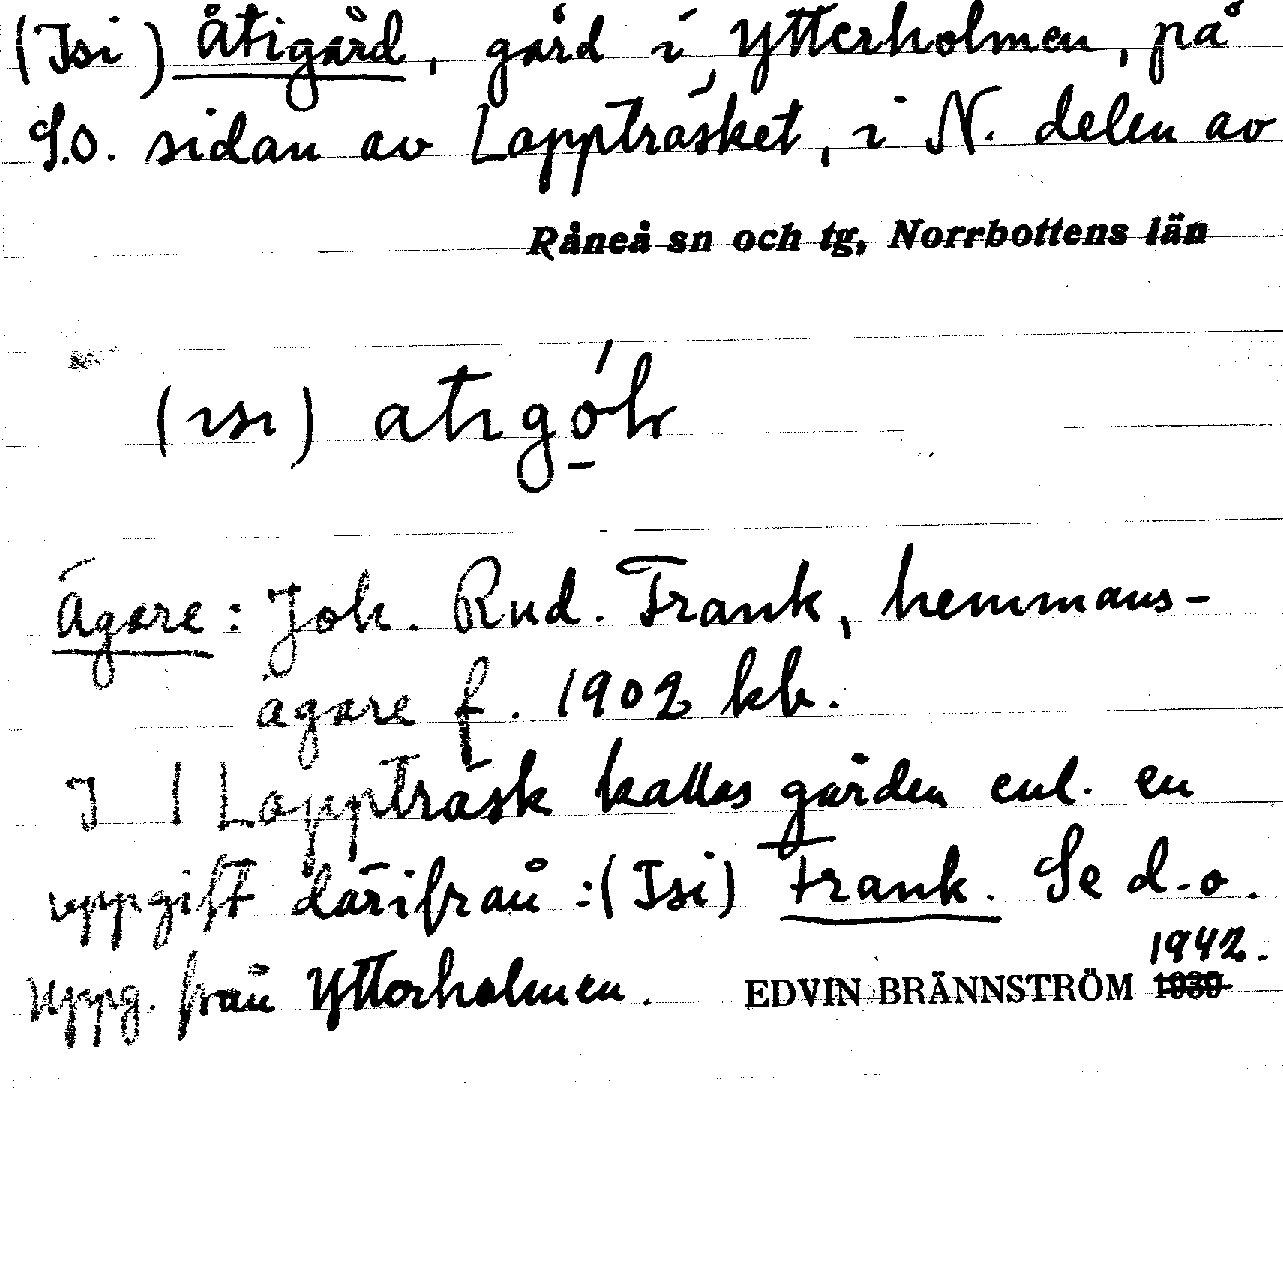 (Isi) Åtigård, gård i Ytterholmen, på
S.O. sidan av Lappträsket, i N. delen av
Råneå sn och tg, Norrbottens län
(ısı)
Ägare: Joh. Rud. Frank, hemmans-
ägare f. 1902 kb.
I Lappträsk kallas gården enl. en
uppgift därifrån: (Isi) Frank. Se d.o.
Uppg. från Ytterholmen. EDVIN BRÄNNSTRÖM 1942.